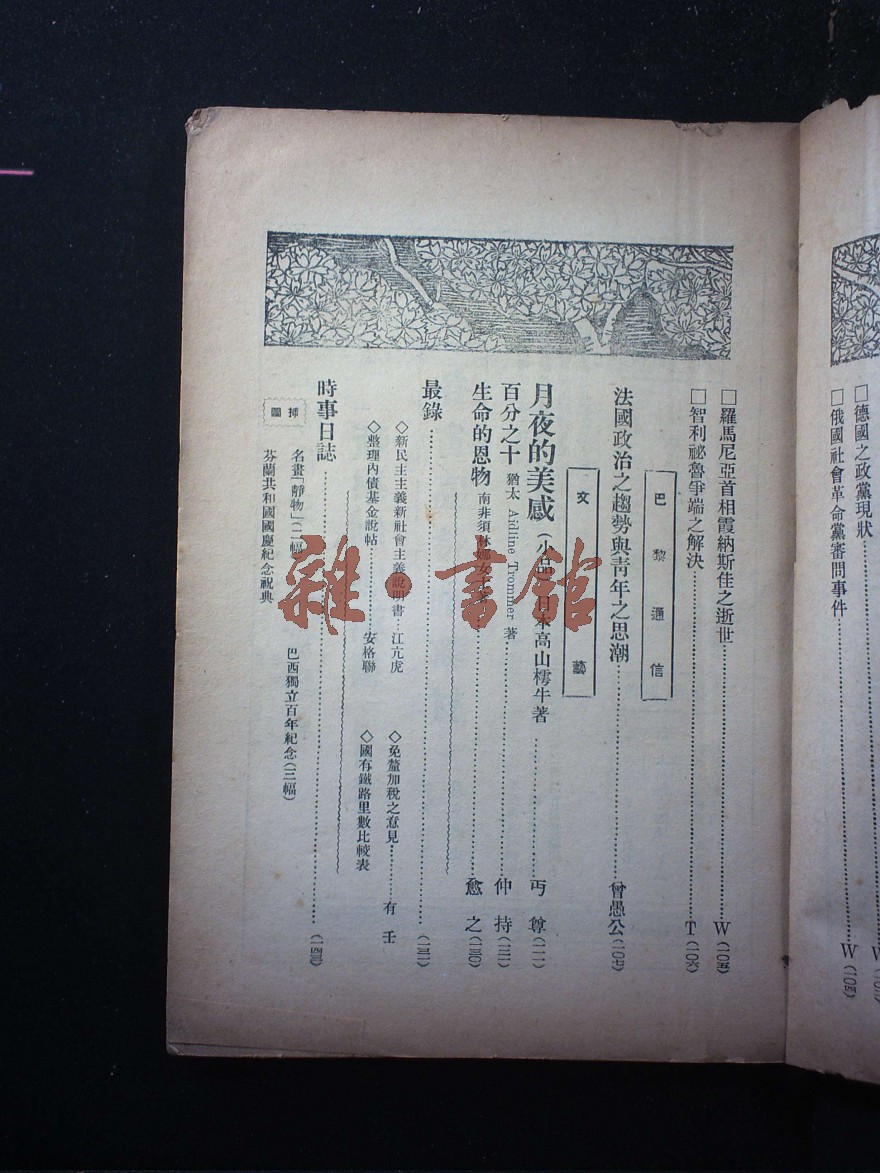 □德國之政黨現狀
□俄國社會革命黨審問事件……W(一〇四)
□羅馬尼亞首相霞納斯佳之逝世……W(一〇五)
□智利祕魯爭端之解決……T(一〇六)
巴黎通信
法國政治之趨勢與青年之思潮……曾愚公(一〇七)
文藝
月夜的美感(小品)日本高山樗牛著……丏尊(一一一)
百分之十 猶太 Aidline Trommer 著……仲持
生命的恩物 南非須林娜女士著……愈之(一三〇)
最錄……
◇新民主主義新社會主義說明書……江亢虎
◇免釐加稅之意見……有壬
◇整理內債基金說帖……安格聯
◇國有鐵路里數比較表
時事日誌……
插圖
名畫「靜物」(二幅)
巴西獨立百年紀念(三幅)
芬蘭共和國國慶紀念祝典
雜·書館